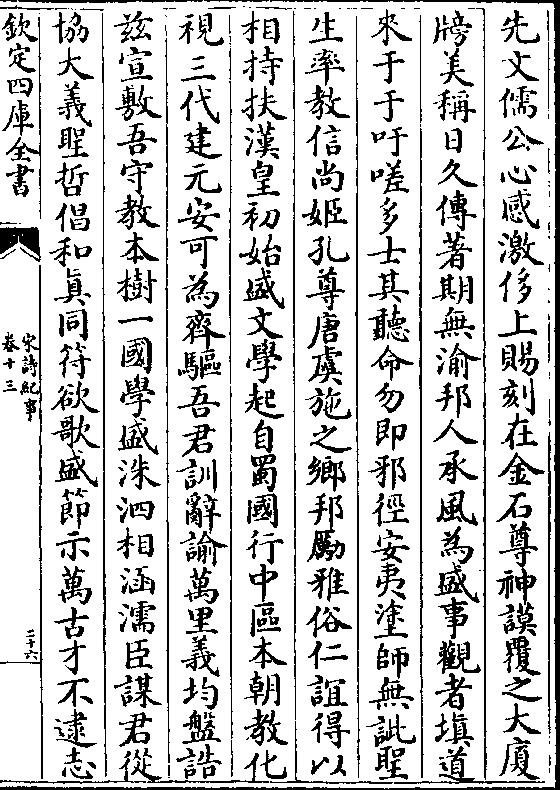 先文儒公心感激侈上賜刻在金石尊神謨覆之大廈
牓美稱日久傳著期無渝邦人承風為盛事觀者塡道
來于于吁嗟多士其聽命勿即邪徑安夷塗師無訿聖
生率教信尚姬孔尊唐虞施之鄉邦勵雅俗仁誼得以
相持扶漢皇初始盛文學起自蜀國行中區本朝教化
視三代建元安可為齊驅吾君訓辭諭萬里義均盤誥
兹宣敷吾守教本樹一國學盛洙泗相涵濡臣謀君從
協大義聖哲倡和眞同符欲歌盛節示萬古才不逮志
欽定四庫全書
宋詩紀事
卷十三
二十六